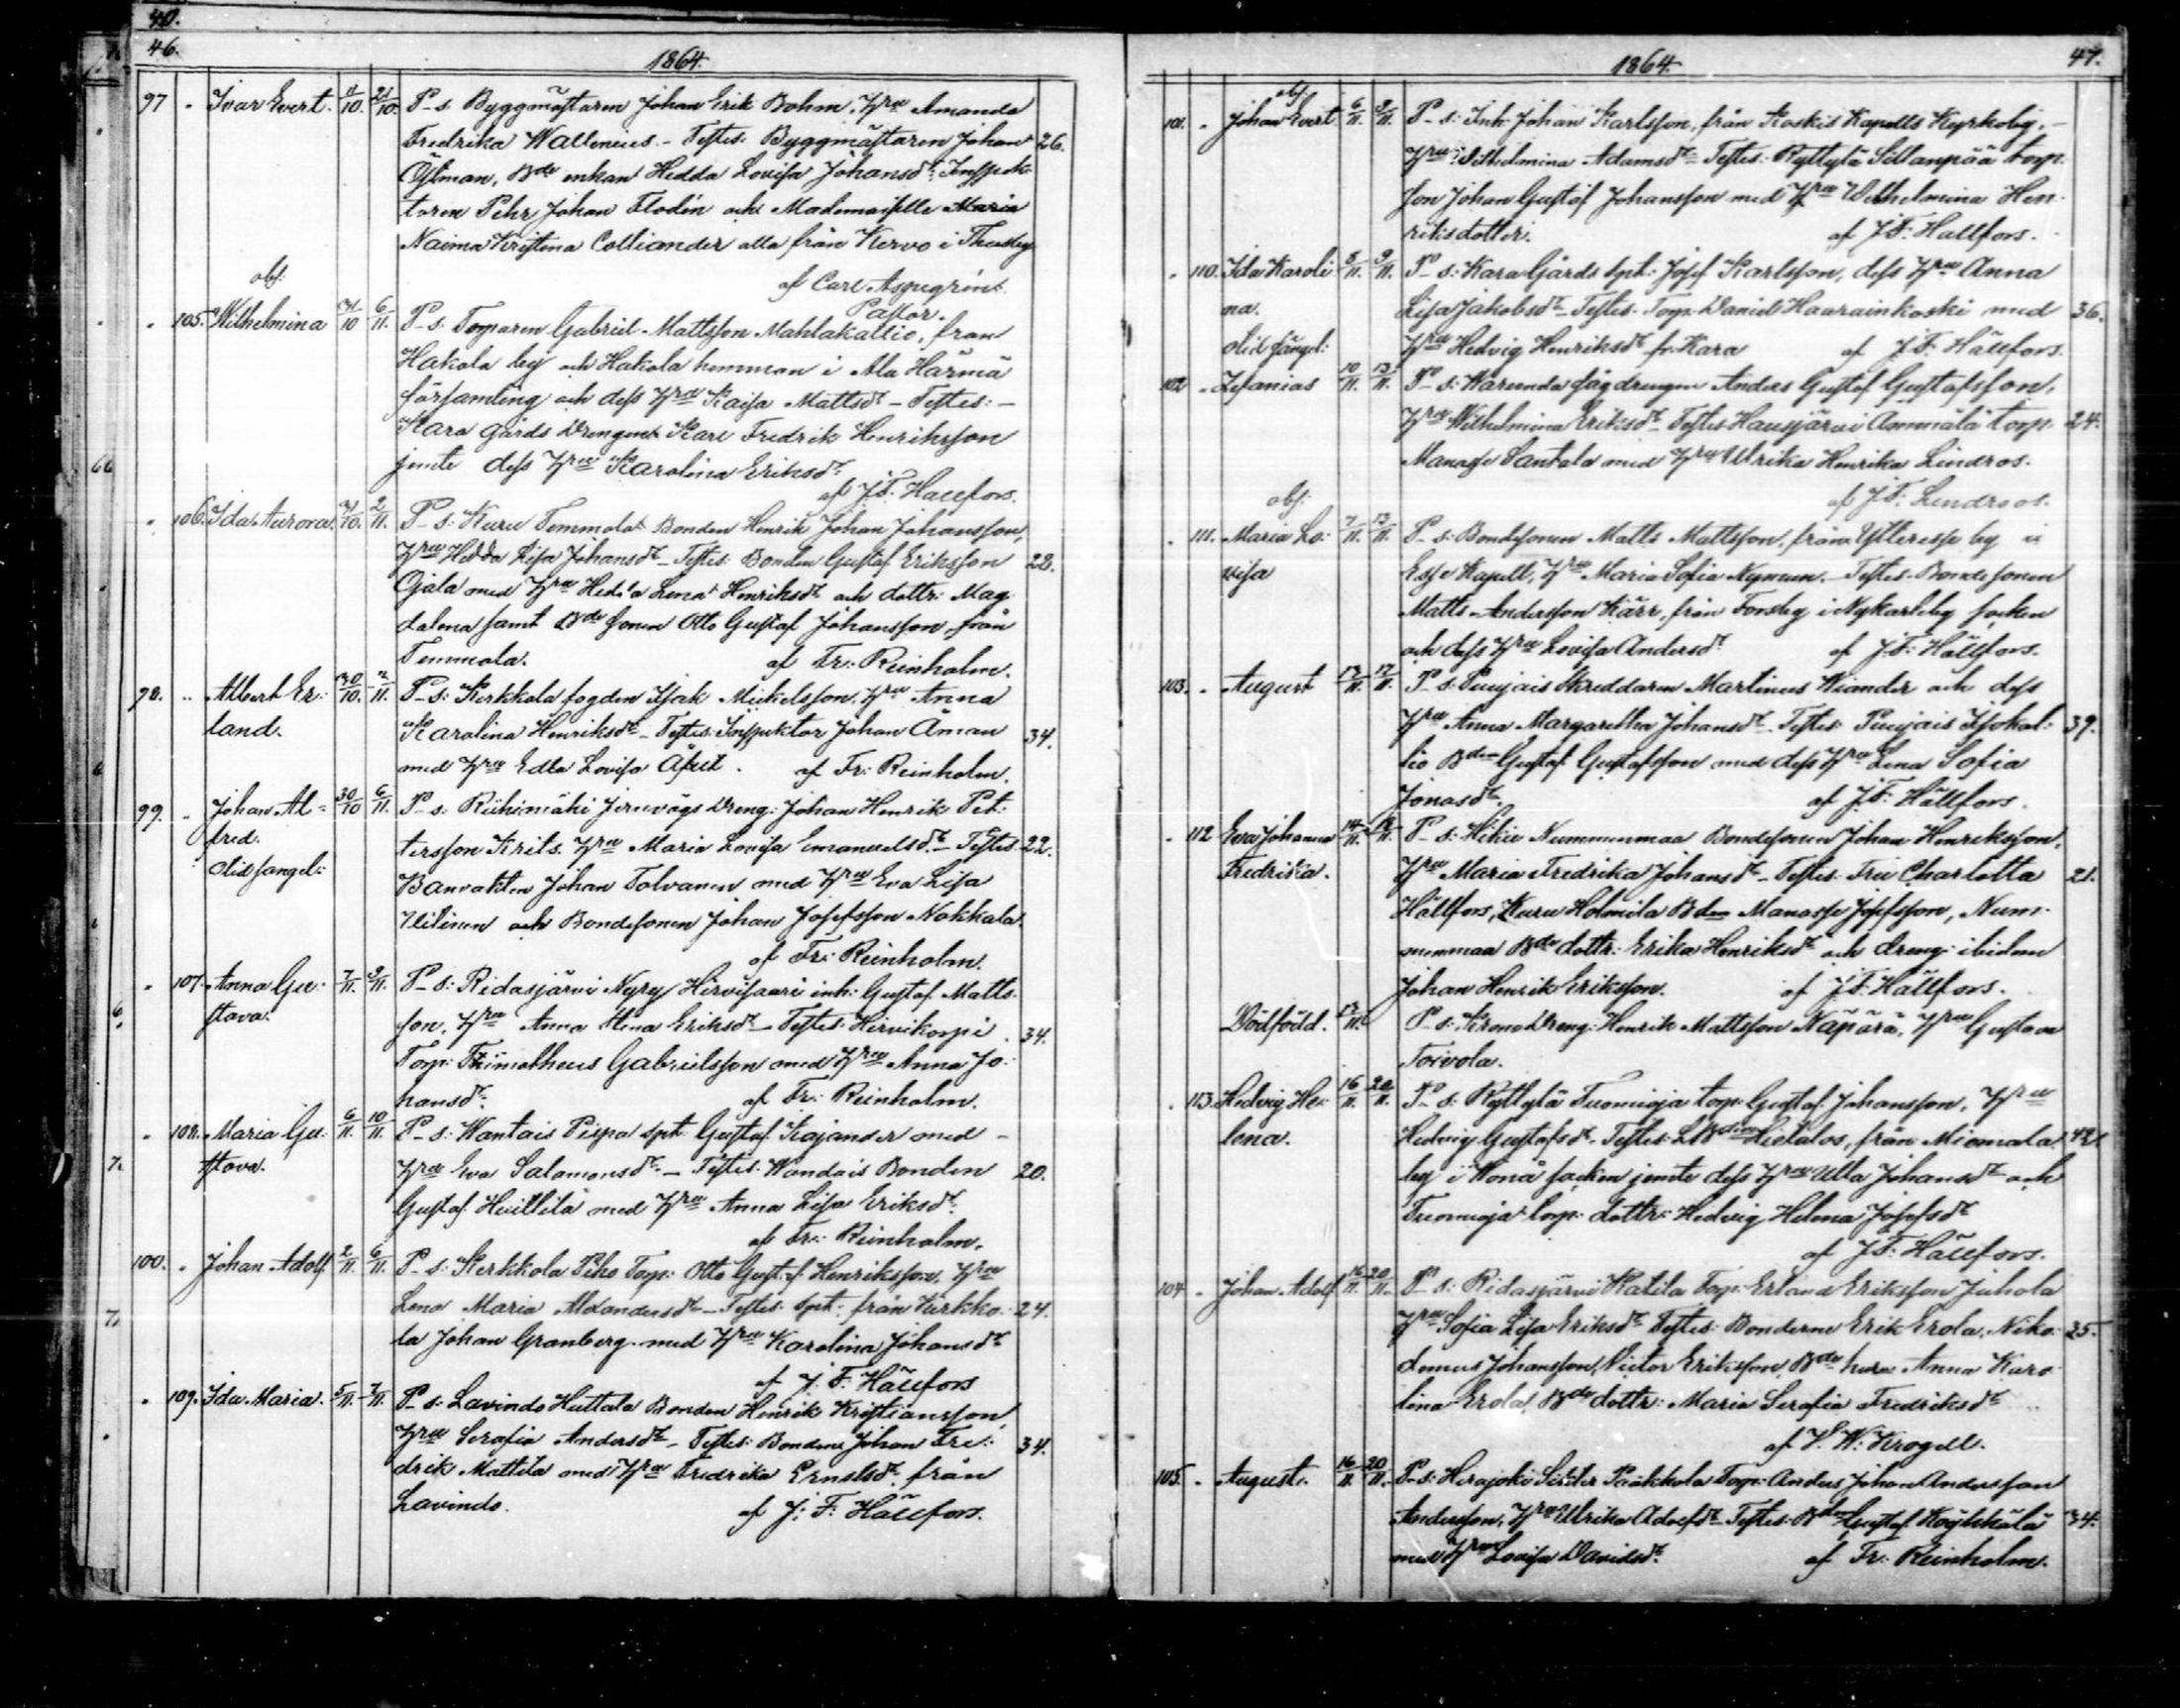 40.
46.
1864.
97 " Ivar Evert. 11/10. 21/10. P-s. Byggmästaren Johan Erik Bohm, Hru Amanda
Fredrika Wallenius. - Testes: Byggmästaren Johan 26.
Östman, Bde enkan Hedda Lovisa Johansdr. Inspek-
toren Pehr Johan Flodin och Mademoiselle Maria
Naima Kristina Colliander alla från Kervo i Thusby
af Carl Aspegrén.
Pastor.
obs:
" 105. Wilhelmina 31/10 6/11. P-s. Torparen Gabriel Mattsson Mahlakallio, från
Hakola by och Hakola hemman i Ala Härmä
församling och dess Hru Kaisa Mattsdr - Testes: -
Kara gårds Drengen Karl Fredrik Henriksson
jemte dess Hru Karolina Eriksdr.
af J.F. Hällfors.
" 106. Ida Aurora. 31/10. 2/11. P-s: Kuru Temmola Bonden Henrik Johan Johansson,
Hru Hedda Lisa Johansdr - Testes: Bonden Gustaf Eriksson 28.
Ojala med Hru Hedda Lena Henriksdr och dottr: Mag-
dalena samt Bde sonen Otto Gustaf Johansson, från
Temmola. af Fr: Reinholm.
98. " Albert Er- 30/10. 2/11. P-s: Kerkkola fogden Isak Mickelsson, Hru Anna
land. Karolina Henriksdr - Testes: Inspektor Johan Åman 34.
med Hru Edla Lovisa . af Fr: Reinholm.
99. " Johan Al- 30/10 6/11. P-s. Riihimäki Jernvägs Dreng: Johan Henrik Pet-
fred. tersson Krits. Hru Maria Lovisa Emanuelsdr - Testes 22.
Olidsangel: Banvakten Johan Tolvanen med Hru Eva Lisa
och Bondesonen Johan Josefsson Nokkala.
af Fr: Reinholm.
" 107. Anna Gu- 7/11. 9/11. P-s: Ridasjärvi Nyry Hirvisaari inh: Gustaf Matts-
stava. son, Hru Anna Stina Eriksdr - Testes: Hirvikorpi 34.
Torp: Thimotheus Gabrielsson med Hru Anna Jo-
hansdr. af Fr: Reinholm.
" 108. Maria Gu- 6/11. 10/11. P-s: Wantais Piispa spt: Gustaf Kajander med -
stava. Hru Eva Salamonsdr. - Testes: Wandais Bonden 20.
Gustaf Heittilä med Hru Anna Lisa Eriksdr.
af Fr: Reinholm.
100. " Johan Adolf 2/11. 6/11. P-s: Kerkkola Piho Torp: Otto Gustaf Henriksson, Hru
Lena Maria Alexandersdr - Testes: spt: från Kerkko- 24.
la Johan Granberg med Hru Karolina Johansdr
af J. F. Hällfors
" 109. Ida Maria. 5/11. 7/11. P-s: Lavindo Huttala Bonden Henrik Kristiansson,
Hru Serafia Andersdr - Testes: Bonden Johan Fre- 34.
drik Mattila med Hru Fredrika Ernstsdr. från
Lavindo. af J: F: Hällfors.
1864. 47.
obs.
101. " Johan Evert 6/11. 9/11. P-s: Inh: Johan Karlsson, från Koskis Kapells Kyrkoby, -
Hru Wilhelmina Adamsdr Testes: Ryttylä Sillanpää torp-
son Johan Gustaf Johansson med Hru Wilhelmina Hen-
riksdotter. af J.F: Hällfors.
" 110. Ida Karoli- 8/11. 9/11. P-s: Kara Gårds spt: Josef Karlsson, dess Hru Anna
na. Lisa Jakobsdr - Testes: Torp: Daniel Haarainkoski med 36.
olidsångel: Hru Hedvig Henriksdr fr. Kara af J.F. Hällfors.
102 " Zefanias 10/11. 13/11. P-s: Warunda sågdrengen Anders Gustaf Gustafsson,
Hru Wilhelmina Eriksdr - Testes Hausjärvi Ammälä torp: 24.
Manasse Santala med Hru Ulrika Henrika Lindros.
af J.F: Lindroos.
obs:
" 111. Maria Lo- 7/11. 13/11. P-s: Bondesonen Matts Mattsson, från Ytteresse by i
visa Esse Kapell, Hru Maria Sofia Nyman. - Testes: Bondesonen
Matts Andersson Kärr, från Forsby i Nykarleby socken
och dess Hru Lovisa Andersdr af J.F: Hällfors.
103. " August 12/11. 17/11. P-s: Puujais Skreddaren Martinus Wiander och dess
Hru Anna Margaretha Johansdr. - Testes: Puujais Isokal- 39.
lio Bden Gustaf Gustafsson med dess Hru Lena Sofia
Jonasdr. af J.F: Hällfors.
" 112 Eva Johanna 14/11. P-s: Hikie Nummenmaa Bondesonen Johan Henriksson,
Fredrika. Hru Maria Fredrika Johansdr - Testes: Fru Charlotta 21.
Hällfors, Kuru Holmila Bden Manasse Josefsson, Num-
menmaa Bde dottr: Erika Henriksdr och dreng: ibidem
Johan Henrik Eriksson. af J.F: Hällfors.
Dödfödd. 12/11. P-s: Krono Dreng: Henrik Mattsson Näpärä, Hru Gustava
Toivola.
" 113. Hedvig He- 16/11. 20/11. P-s: Ryttylä Tuomioja torp: Gustaf Johansson, Hru
lena. Hedvig Gustafsdr. Testes: Bden Hietalos, från Miemala 42.
by i Wånå socken jemte dess Hru Ulla Johansdr och
Tuomioja torp: dottr: Hedvig Helena Josefsdr
af J.F: Hällfors.
104 " Johan Adolf 16/11. 20/11. P-s: Ridasjärvi Katila Torp: Erland Eriksson Juhola
Hru Sofia Lisa Eriksdr Testes: Bonderne Erik Erola, Niko- 25.
demus Johansson, Victor Eriksson, Bde hu Anna Karo-
lina Erola, Bde dottr: Maria Serafia Fredriksdr
af V. W: Krogell.
105. " August. 16/11. 20/11. P-s: Herajoki Paakkola Torp: Anders Johan Andersson
Andersson, Hru Ulrika Adolfsdr - Testes: Bden Gustaf Köykkälä 34.
med Hru Lovisa Davidsdr. af Fr: Reinholm.